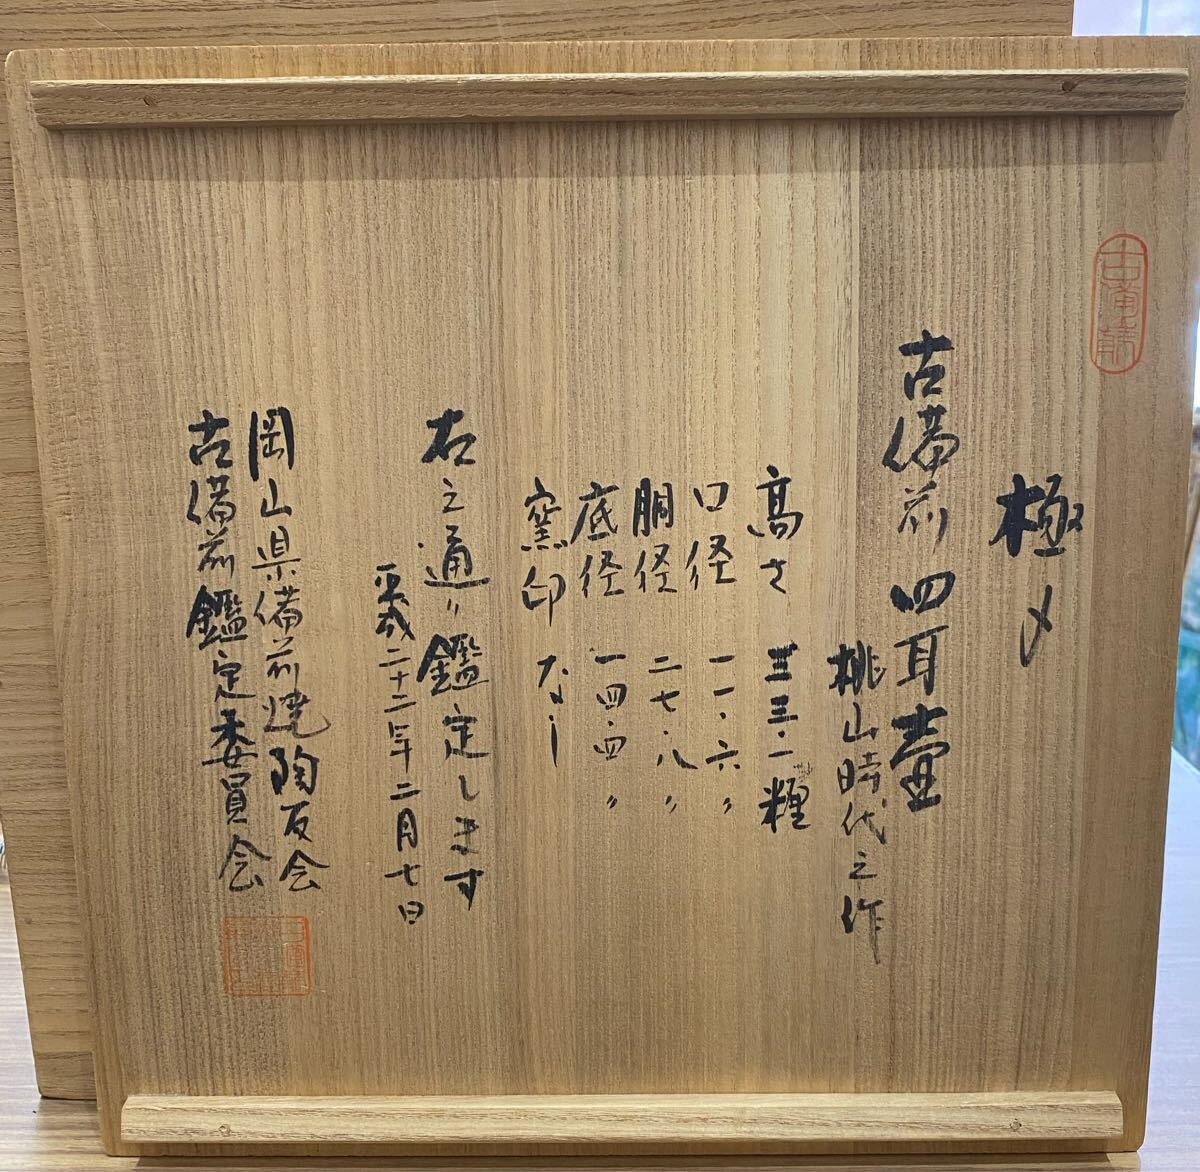 古備前
極〆
古備前 四耳壷
桃山時代之作
高さ 三三・一糎
口径 一一・六〃
胴径 二七・八〃
底径 一四・四〃
窯印 なし
右之通り鑑定します
平成二十二年二月七日
岡山県備前焼陶友会
古備前鑑定委員会